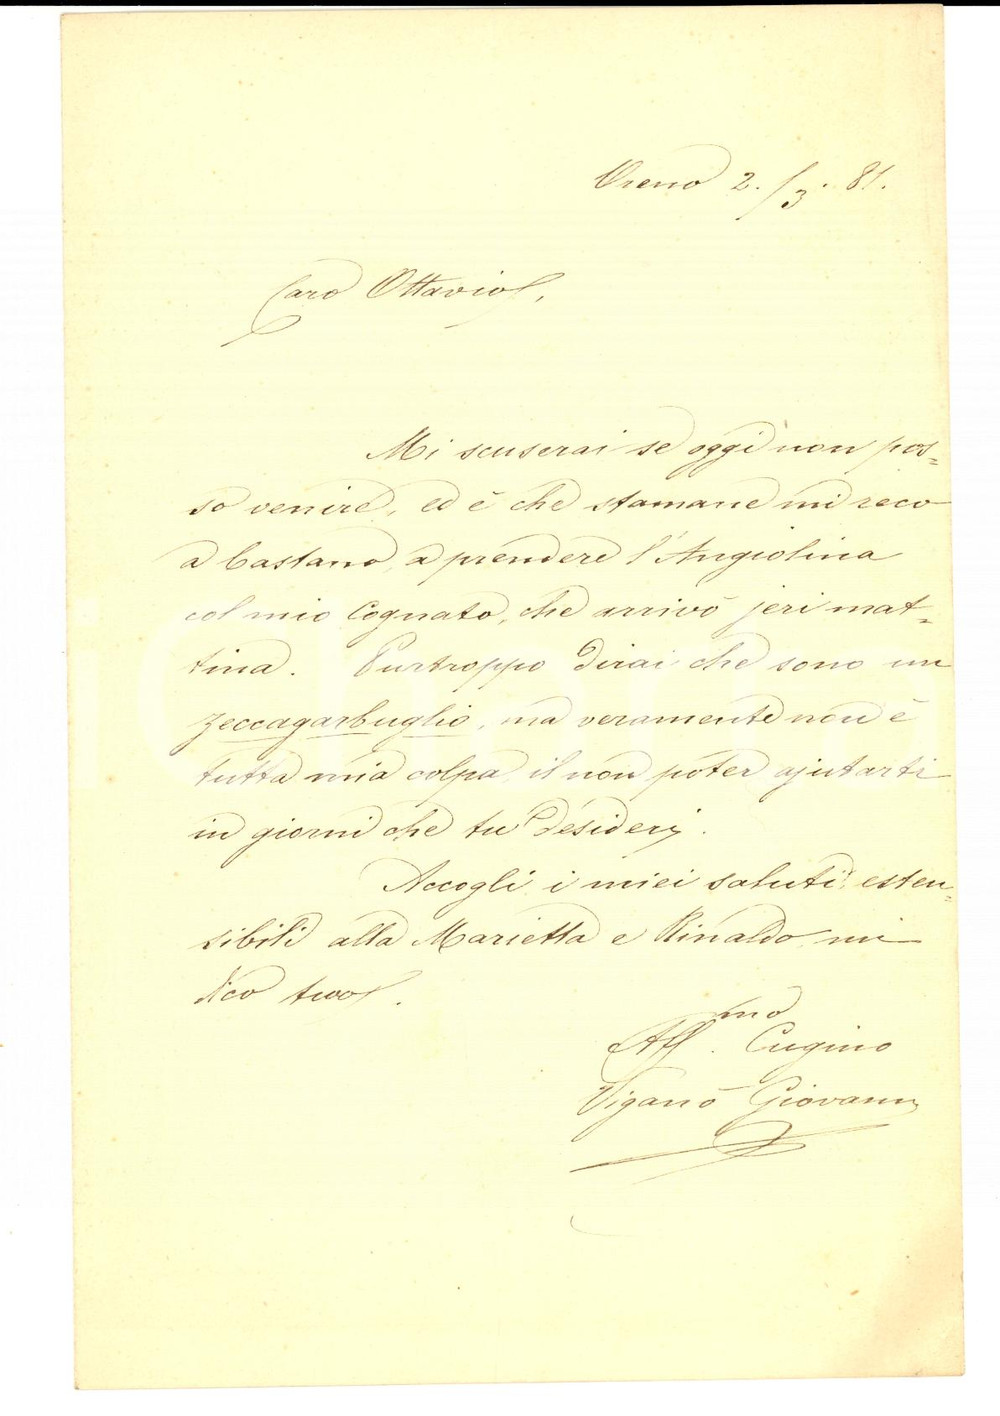 Oreno 2./3. 81.
Caro Ottavio,
Mi scuserai se oggi non pos=
so venire, ed è che stamane mi reco
a Castano, a prendere l'Angiolina
col mio Cognato, che arrivò jeri mat=
tina. Purtroppo dirai che sono un
zeccagarbuglio, ma veramente non è
tutta mia colpa il non poter ajutarti
in giorni che tu desiderj.
Accogli i miei saluti esten=
sibili alla Marietta e Rinaldo mi
dico tuo.
Aff.mo Cugino
Viganò Giovanni